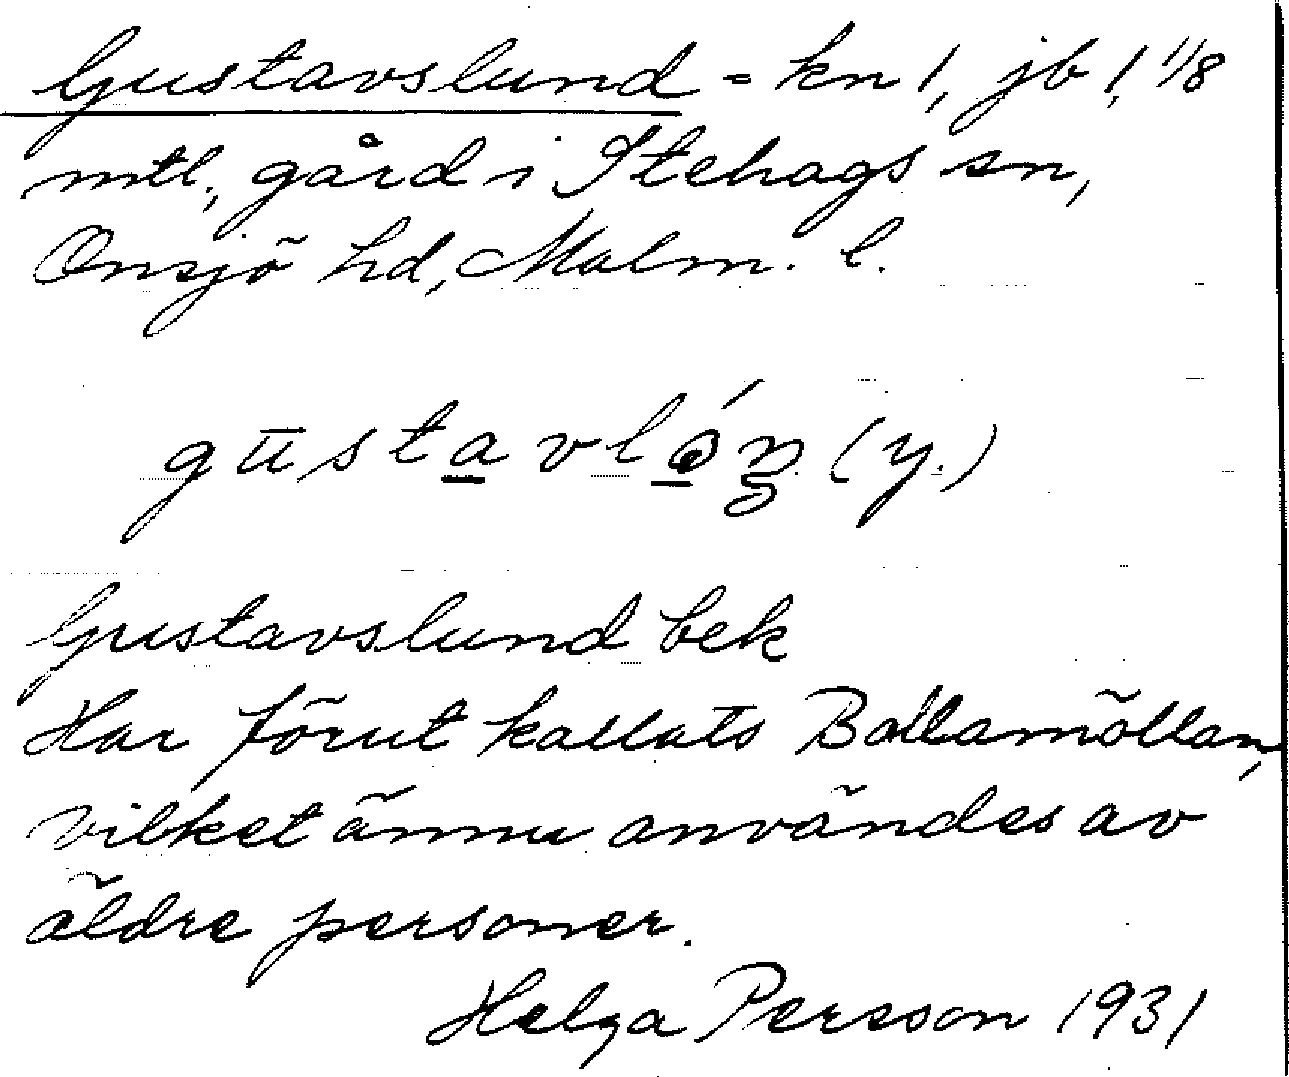 Gustavslund = kn 1, jb 1, 1/8
mtl., gård i Stehags sn,
Onsjö hd, Malm. l.
(y.)
Gustavslund bek
Har förut kallats Ballamöllan,
vilket ännu användes av
äldre personer.
Helga Persson 1931